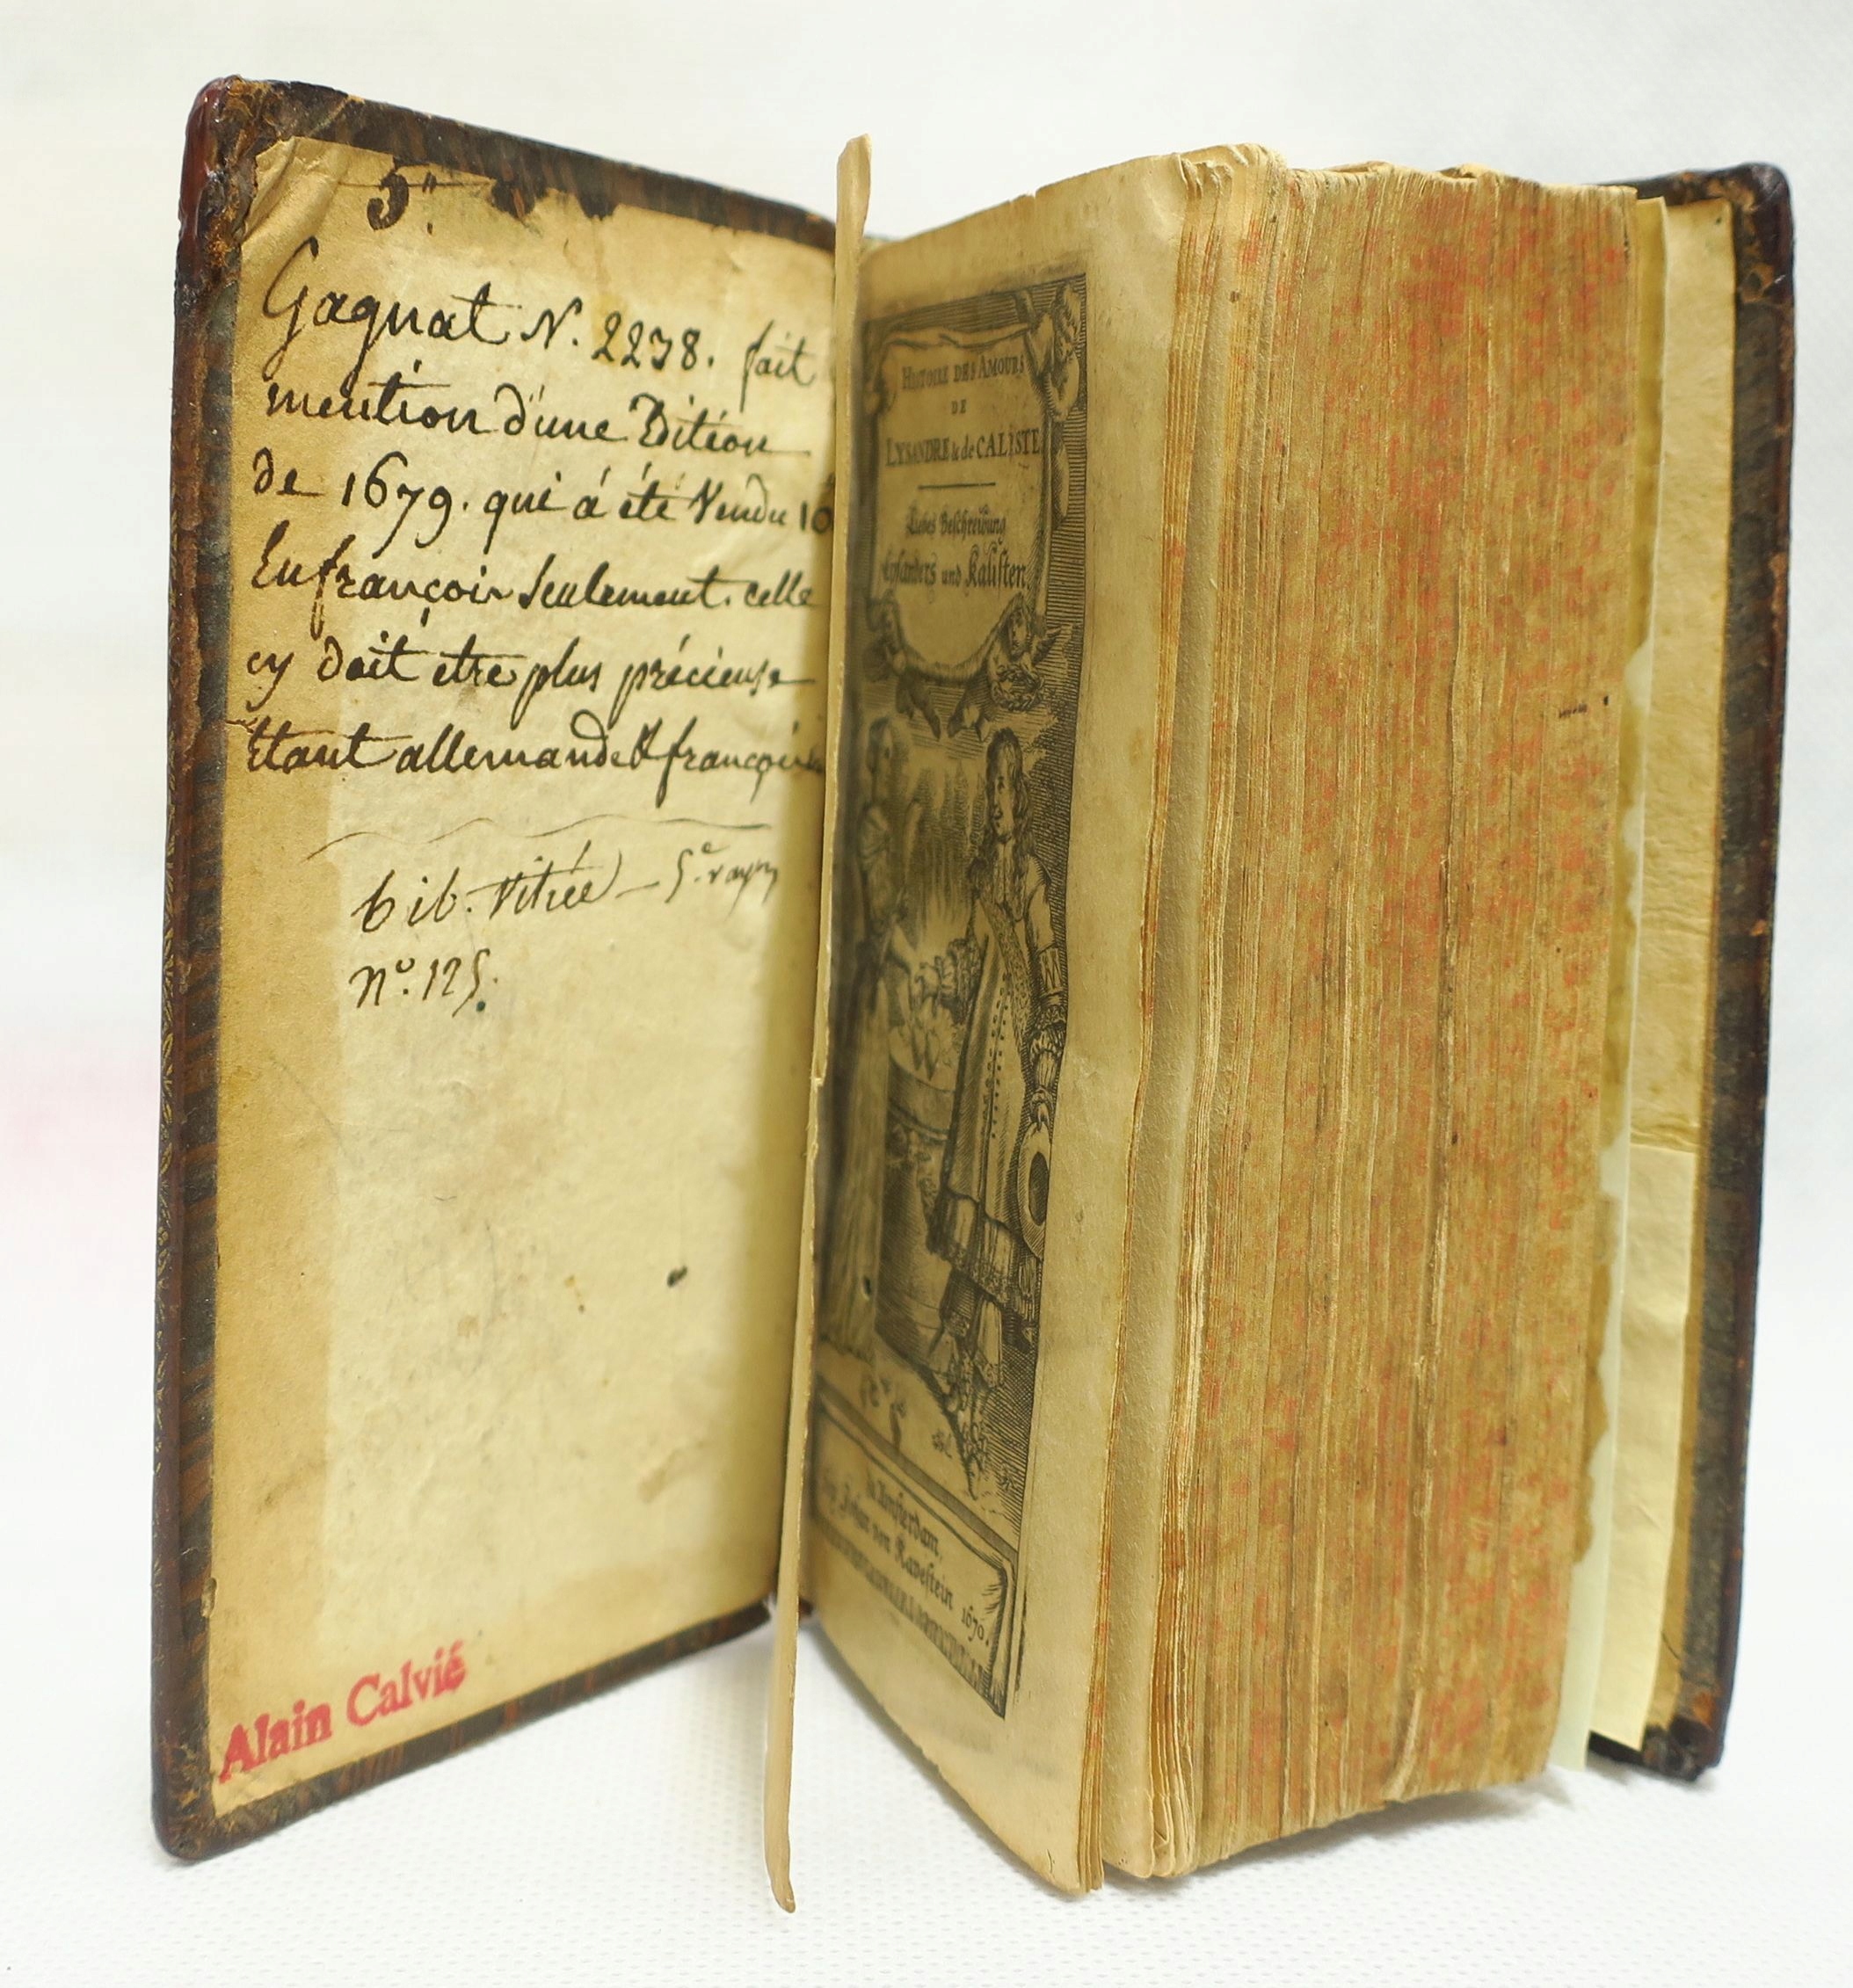 5.
Gagnat N. 2238. fait
mention d'une Edition
de 1679. qui á été Vendu 10
En françois Seulement. celle
cy doit etre plus précieuse
Etant allemande & françoise
bib. Vitrée - 5e rayon
No. 125.
Alain Calvié
HISTOIRE DES AMOURS
DE
LYSANDRE & de CALISTE
Liebes Beschreibung
Lysanders und Kalisten
Amsterdam,
Johan von Ravestein 1670.